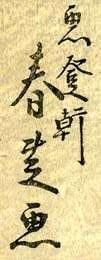 画登軒
春芝画